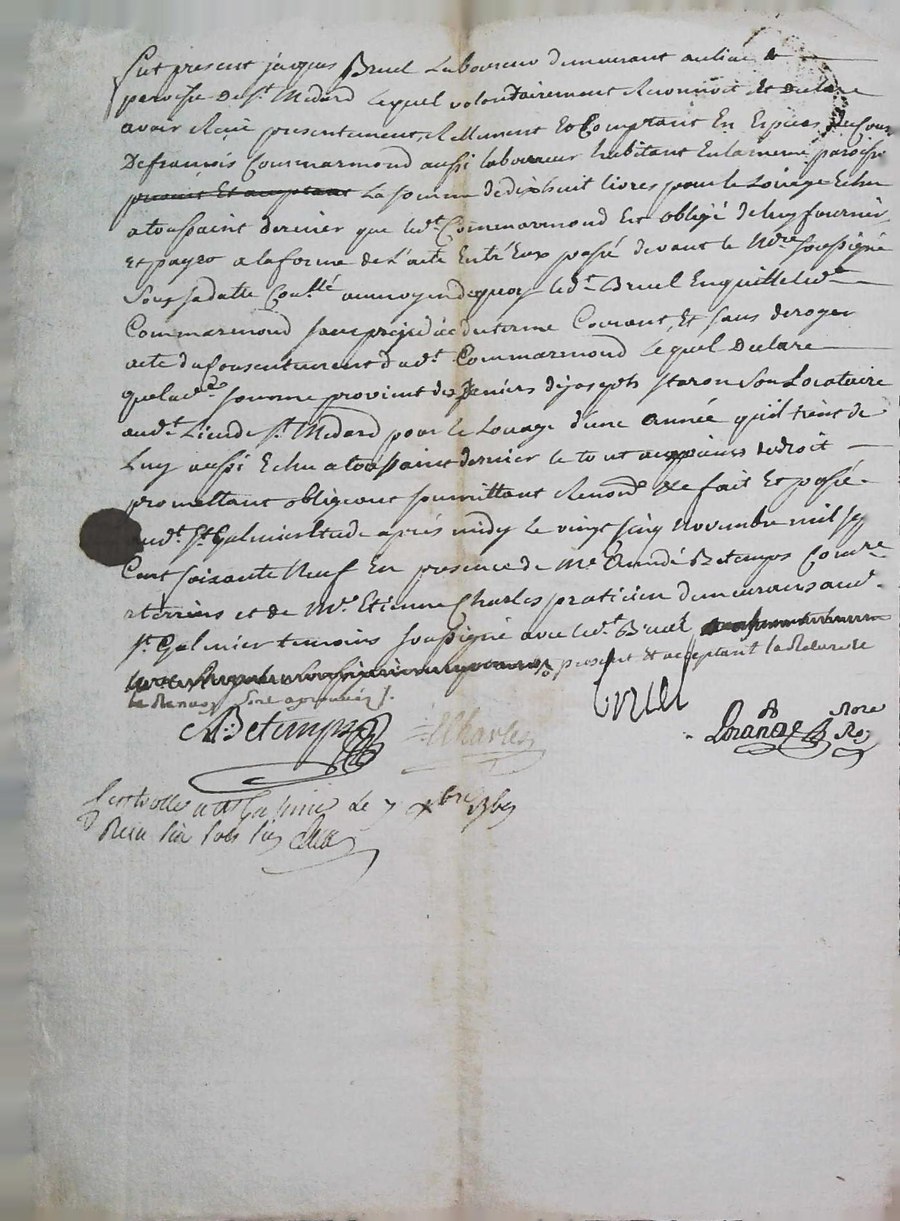 Fut present jacques Bruel Laboureur demeurant au lieu &
paroisse de St. Medard lequel volontairement Reconnoit Et declare
avoir Receu presentement, Reellement Et Comptant En Especes de Cours
De françois Commarmond aussi laboureur habitant En la meme paroisse
present Et acceptant La somme de dixhuit livres pour le Louage Echu
a toussaint dernier que led.t Commarmond Est obligé de luy fournir
Et payer a la forme de L'acte Entr'Eux passé devant le No.re soussigné
Sous sa datte Con.llé au moyen de quoy led.t Bruel En quitte led.t
Commarmond sans prejudice du terme Courant, Et sans deroger
acte du Consentement dud.t Commarmond lequel Declare
que lad.e somme provient des deniers de joseph staron Son Locataire
aud.t Lieu de St. Medard pour le Louage d'une année qu'il tient de
Luy aussi Echu a toussaint dernier le tout de droit
promettant obligeant soumittant Renond. &c fait Et passé
aud.t St. Galmier Etude aprés midy le vingt sinq novembre mil sep
Cent soixante Neuf En presence de Me. Betemps Com.re
et terriers et de Me. Etienne Charles praticien demeurans aud.
St. Galmier temoins soussigné avec led.t Bruel
present & acceptant la Rature de
le Renvoy sont aprouvés ./.
ABetemps
E Charles
bruel
No.re
Ro.
Controllé a St Galmier Le 7 xbre 1769
Receu six sols six